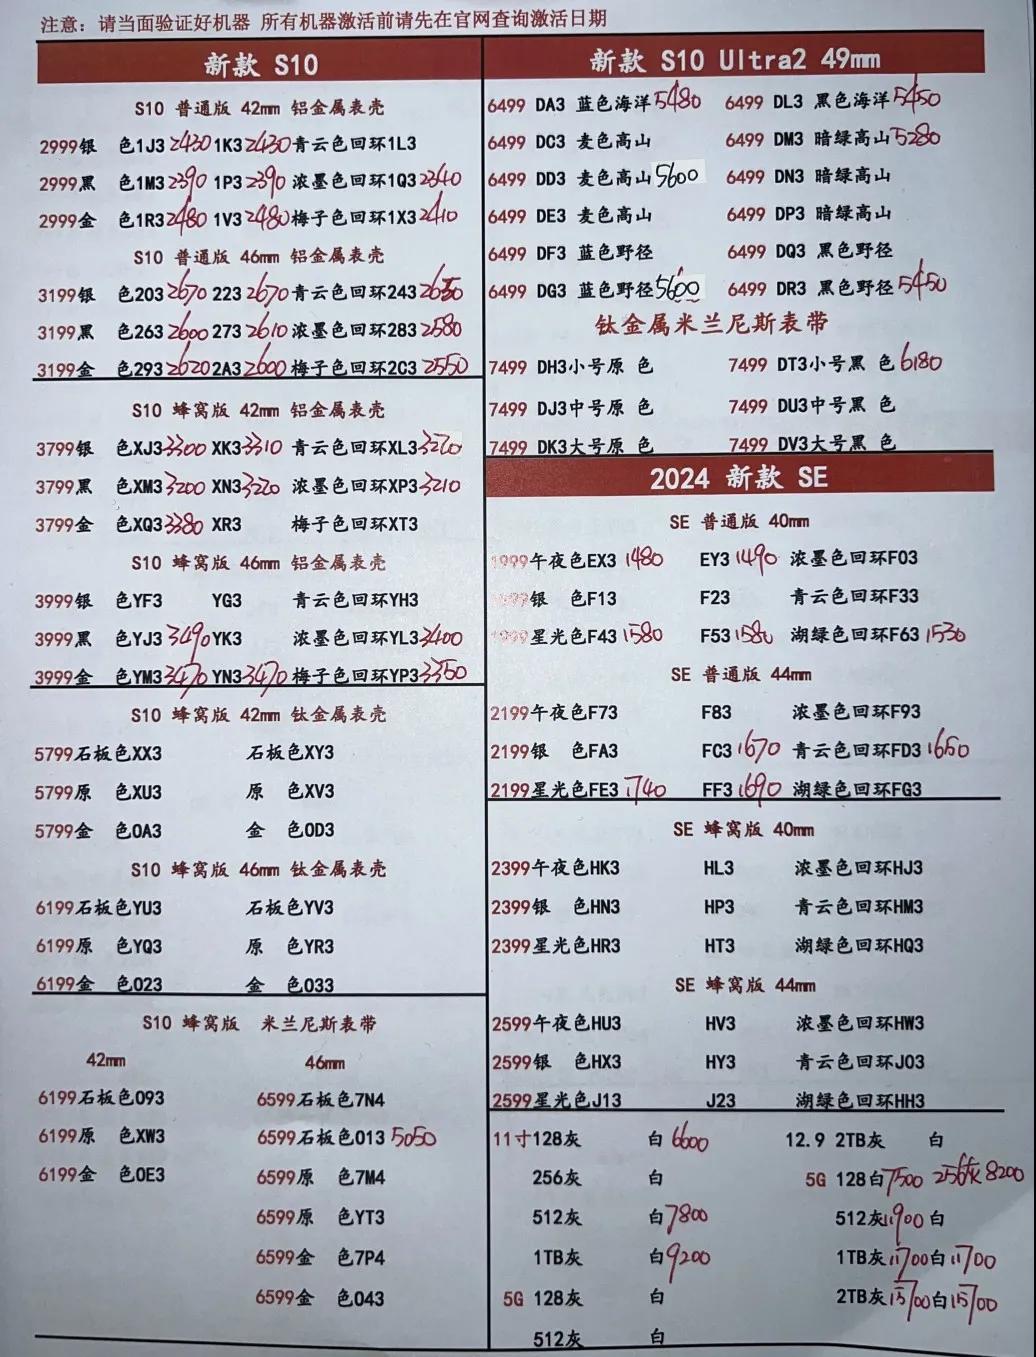 注意：请当面验证好机器 所有机器激活前请先在官网查询激活日期
新款 S10
S10 普通版 42mm 铝金属表壳
2999银 色1J3 2430 1K3 2430 青云色回环1L3
2999黑 色1M3 2390 1P3 2390 浓墨色回环1Q3 2340
2999金 色1R3 2480 1V3 2480 梅子色回环1X3 2410
S10 普通版 46mm 铝金属表壳
3199银 色203 2670 223 2670 青云色回环243
3199黑 色263 2600 273 2610 浓墨色回环283 2580
3199金 色293 2620 2A3 2600 梅子色回环2C3 2550
S10 蜂窝版 42mm 铝金属表壳
3799银 色XJ3 3300 XK3 3310 青云色回环XL3 3220
3799黑 色XM3 3200 XN3 3220 浓墨色回环XP3 3210
3799金 色XQ3 3380 XR3 梅子色回环XT3
S10 蜂窝版 46mm 铝金属表壳
3999银 色YF3 YG3 青云色回环YH3
3999黑 色YJ3 3490 YK3 浓墨色回环YL3 3400
3999金 色YM3 3470 YN3 3470 梅子色回环YP3 3350
S10 蜂窝版 42mm 钛金属表壳
5799石板色XX3 石板色XY3
5799原 色XU3 原 色XV3
5799金 色0A3 金 色0D3
S10 蜂窝版 46mm 钛金属表壳
6199石板色YU3 石板色YV3
6199原 色YQ3 原 色YR3
6199金 色023 金 色033
S10 蜂窝版 米兰尼斯表带
42mm 46mm
6199石板色093 6599石板色7N4
6199原 色XW3 6599石板色013 5050
6199金 色0E3 6599原 色7M4
6599原 色YT3
6599金 色7P4
6599金 色043
新款 S10 Ultra2 49mm
6499 DA3 蓝色海洋 5480 6499 DL3 黑色海洋 5450
6499 DC3 麦色高山 6499 DM3 暗绿高山 5280
6499 DD3 麦色高山 5600 6499 DN3 暗绿高山
6499 DE3 麦色高山 6499 DP3 暗绿高山
6499 DF3 蓝色野径 6499 DQ3 黑色野径
6499 DG3 蓝色野径 5600 6499 DR3 黑色野径 5450
钛金属米兰尼斯表带
7499 DH3小号原 色 7499 DT3小号黑 色 6180
7499 DJ3中号原 色 7499 DU3中号黑 色
7499 DK3大号原 色 7499 DV3大号黑 色
2024 新款 SE
SE 普通版 40mm
1999午夜色EX3 1480 EY3 1490 浓墨色回环F03
1999银 色F13 F23 青云色回环F33
1999星光色F43 1580 F53 1580 湖绿色回环F63 1530
SE 普通版 44mm
2199午夜色F73 F83 浓墨色回环F93
2199银 色FA3 FC3 1670 青云色回环FD3 1650
2199星光色FE3 1740 FF3 1690 湖绿色回环FG3
SE 蜂窝版 40mm
2399午夜色HK3 HL3 浓墨色回环HJ3
2399银 色HN3 HP3 青云色回环HM3
2399星光色HR3 HT3 湖绿色回环HQ3
SE 蜂窝版 44mm
2599午夜色HU3 HV3 浓墨色回环HW3
2599银 色HX3 HY3 青云色回环J03
2599星光色J13 J23 湖绿色回环HH3
11寸128灰 白 6600 12.9 2TB灰 白
256灰 白 5G 128白 7500 256灰 8200
512灰 白 7800 512灰 11900 白
1TB灰 白 9200 1TB灰 11700 白 11700
5G 128灰 白 2TB灰 15700 白 15700
512灰 白